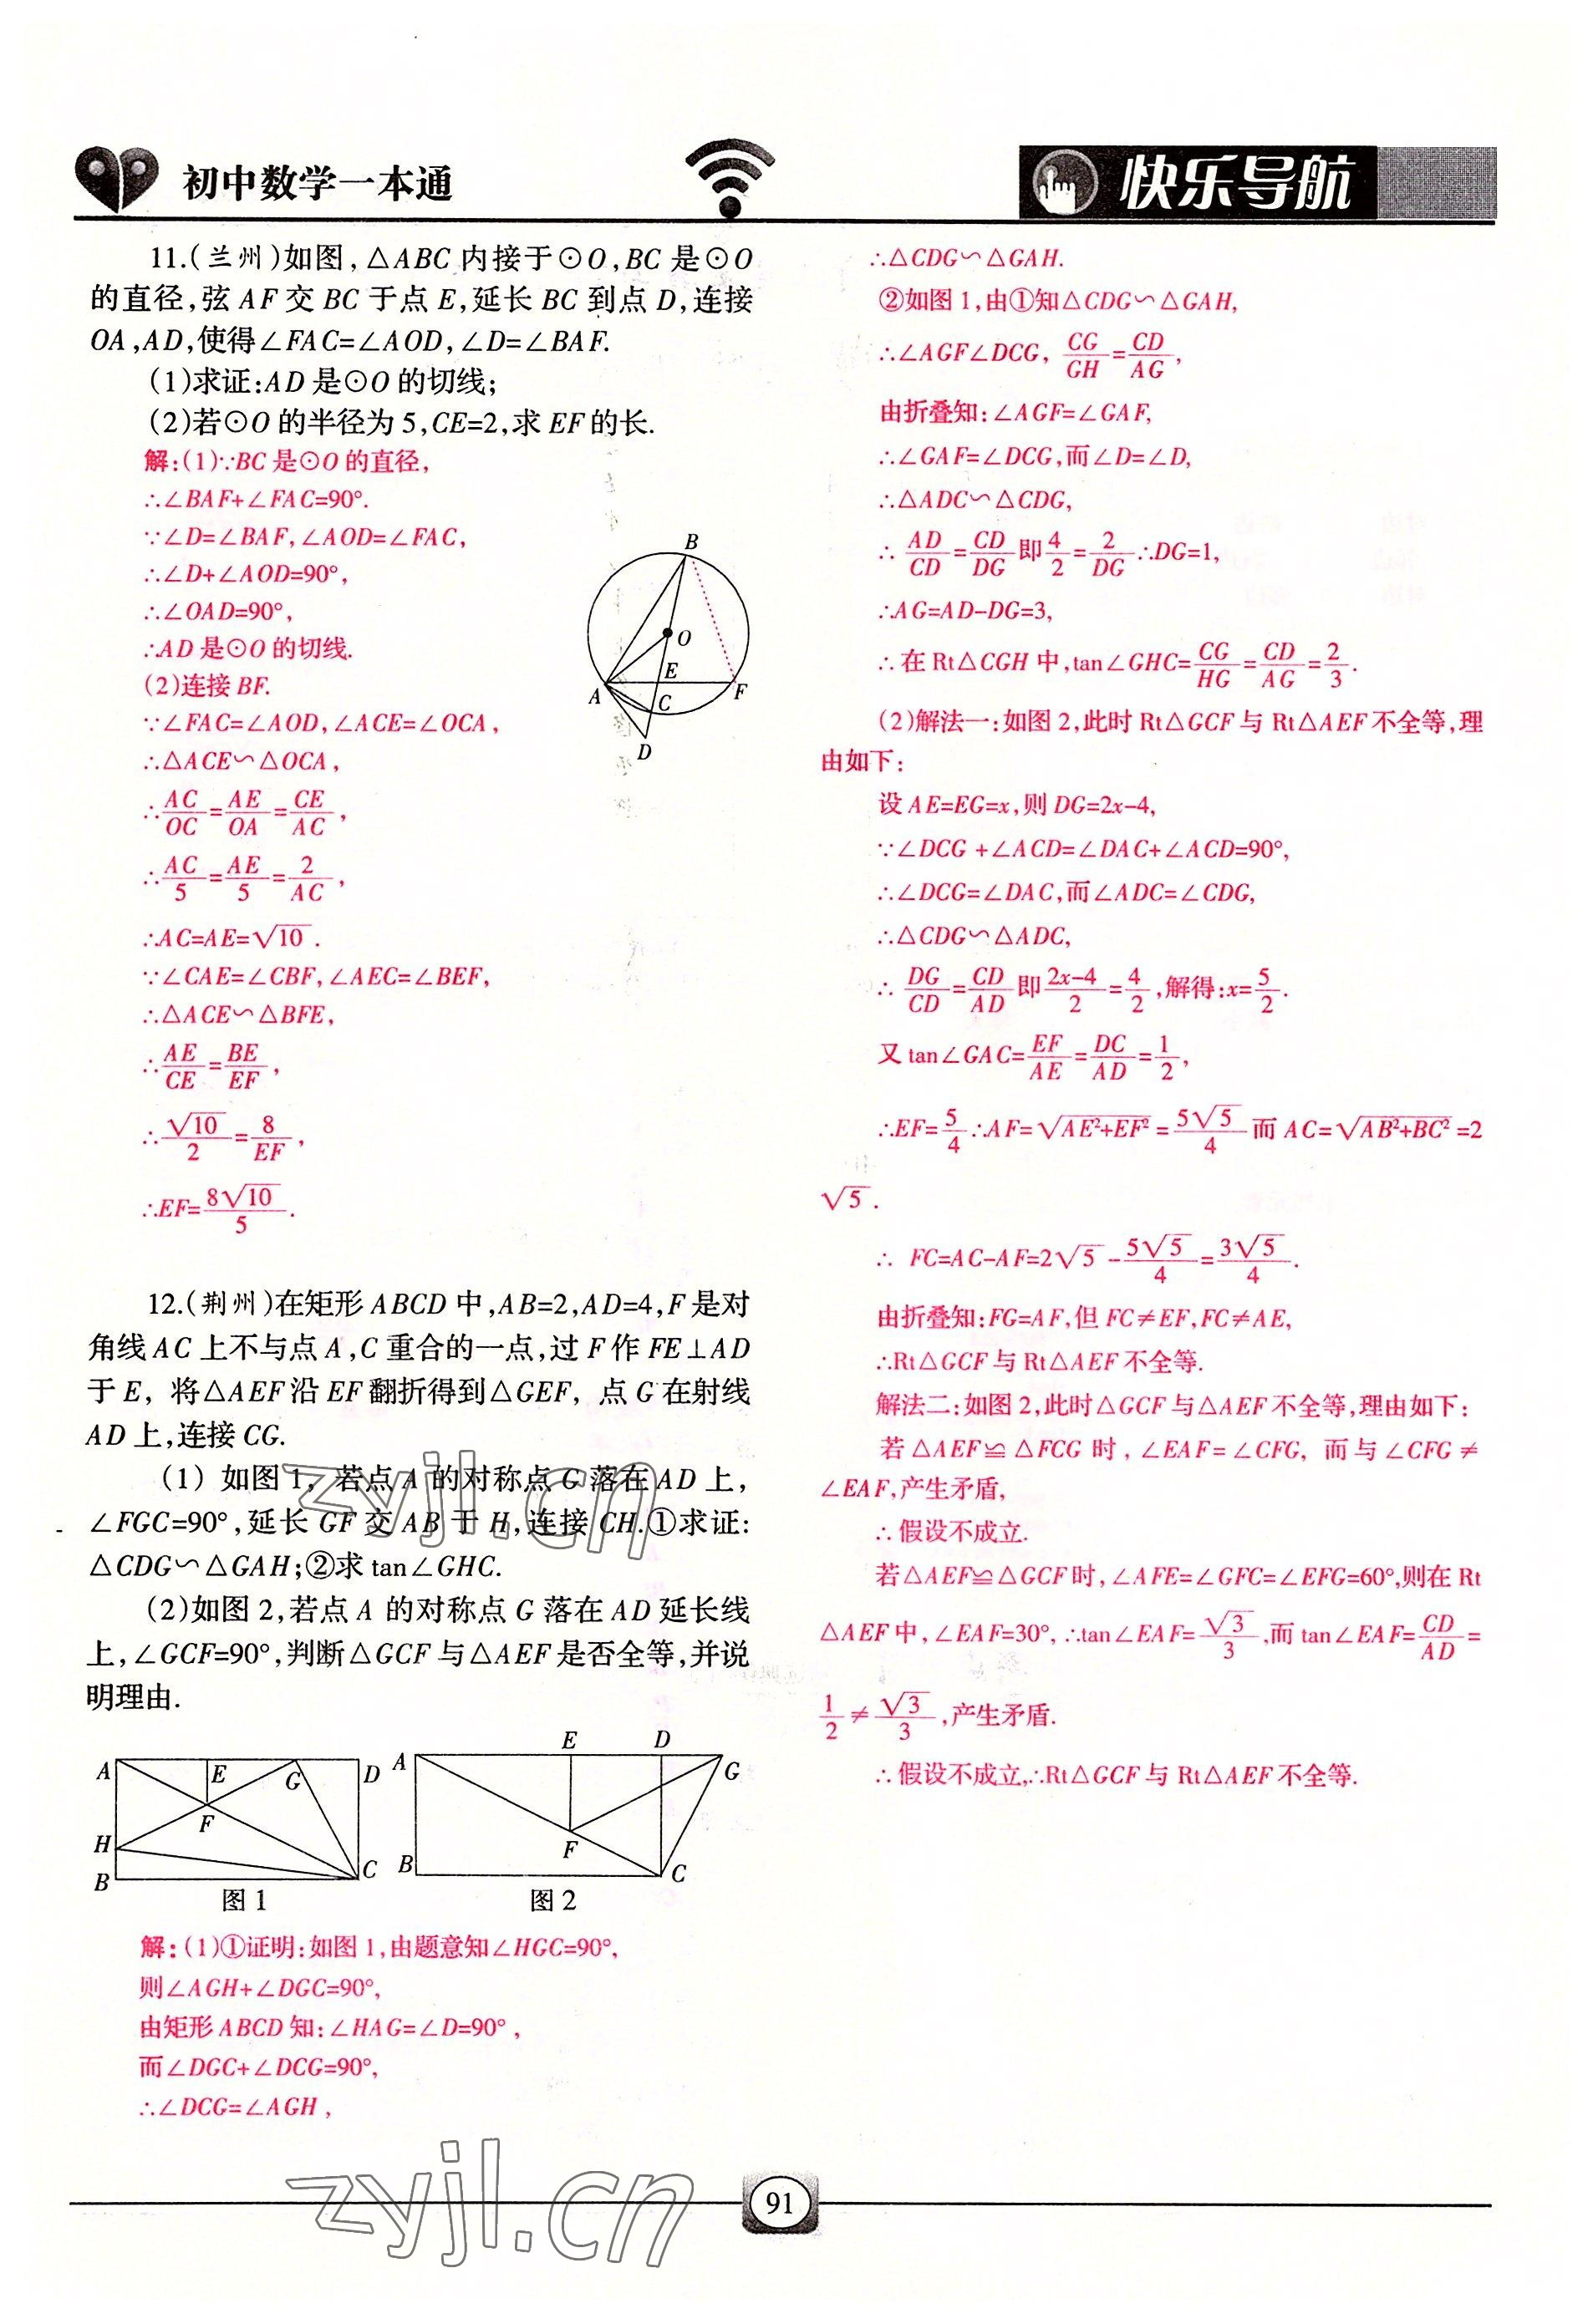 初中数学一本通
快乐导航
11.(兰州)如图,△ABC内接于⊙O,BC是⊙O
的直径,弦AF交BC于点E,延长BC到点D,连接
OA,AD,使得∠FAC=∠AOD,∠D=∠BAF.
(1)求证:AD是⊙O的切线;
(2)若⊙O的半径为5,CE=2,求EF的长.
解:(1)∵BC是⊙O的直径,
∴∠BAF+∠FAC=90°.
∵∠D=∠BAF,∠AOD=∠FAC,
∴∠D+∠AOD=90°,
∴∠OAD=90°,
∴AD是⊙O的切线.
(2)连接BF.
∵∠FAC=∠AOD,∠ACE=∠OCA,
∴△ACE∽△OCA,
∴AC/OC=AE/OA=CE/AC,
∴AC/5=AE/5=2/AC,
∴AC=AE=√10.
∵∠CAE=∠CBF,∠AEC=∠BEF,
∴△ACE∽△BFE,
∴AE/CE=BE/EF,
∴√10/2=8/EF,
∴EF=8√10/5.
B
O
E
A
F
C
D
12.(荆州)在矩形ABCD中,AB=2,AD=4,F是对
角线AC上不与点A,C重合的一点,过F作FE⊥AD
于E,将△AEF沿EF翻折得到△GEF,点G在射线
AD上,连接CG.
(1)如图1,若点A的对称点G落在AD上,
∠FGC=90°,延长GF交AB于H,连接CH.①求证:
△CDG∽△GAH;②求tan∠GHC.
(2)如图2,若点A的对称点G落在AD延长线
上,∠GCF=90°,判断△GCF与△AEF是否全等,并说
明理由.
A E G D
F
H
B C
图1
A E D G
F
B C
图2
解:(1)①证明:如图1,由题意知∠HGC=90°,
则∠AGH+∠DGC=90°,
由矩形ABCD知:∠HAG=∠D=90°,
而∠DGC+∠DCG=90°,
∴∠DCG=∠AGH,
∴△CDG∽△GAH.
②如图1,由①知△CDG∽△GAH,
∴∠AGF∠DCG,CG/GH=CD/AG,
由折叠知:∠AGF=∠GAF,
∴∠GAF=∠DCG,而∠D=∠D,
∴△ADC∽△CDG,
∴AD/CD=CD/DG即4/2=2/DG∴DG=1,
∴AG=AD-DG=3,
∴在Rt△CGH中,tan∠GHC=CG/HG=CD/AG=2/3.
(2)解法一:如图2,此时Rt△GCF与Rt△AEF不全等,理
由如下:
设AE=EG=x,则DG=2x-4,
∵∠DCG+∠ACD=∠DAC+∠ACD=90°,
∴∠DCG=∠DAC,而∠ADC=∠CDG,
∴△CDG∽△ADC,
∴DG/CD=CD/AD即(2x-4)/2=4/2,解得:x=5/2.
又tan∠GAC=EF/AE=DC/AD=1/2,
∴EF=5/4∴AF=√(AE²+EF²)=5√5/4而AC=√(AB²+BC²)=2
√5.
∴FC=AC-AF=2√5-5√5/4=3√5/4.
由折叠知:FG=AF,但FC≠EF,FC≠AE,
∴Rt△GCF与Rt△AEF不全等.
解法二:如图2,此时△GCF与△AEF不全等,理由如下:
若△AEF≌△FCG时,∠EAF=∠CFG,而与∠CFG≠
∠EAF,产生矛盾,
∴假设不成立.
若△AEF≌△GCF时,∠AFE=∠GFC=∠EFG=60°,则在Rt
△AEF中,∠EAF=30°,∴tan∠EAF=√3/3,而tan∠EAF=CD/AD=
1/2≠√3/3,产生矛盾.
∴假设不成立,∴Rt△GCF与Rt△AEF不全等.
zyjl.cn
zyjl.cn
91